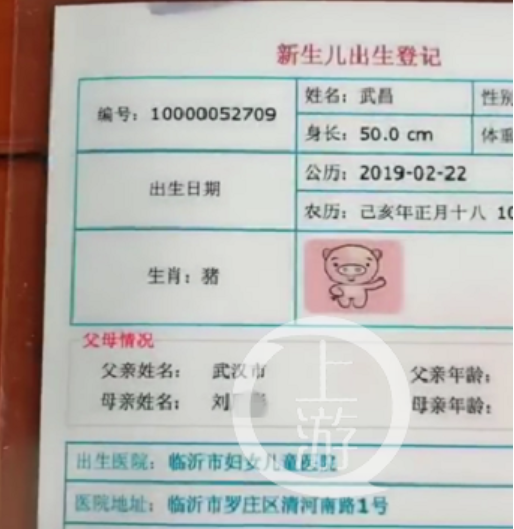 新生儿出生登记
编号：10000052709
姓名：武昌
性别
身长：50.0 cm
体重
出生日期
公历：2019-02-22
农历：己亥年正月十八 10
生肖：猪
父母情况
父亲姓名： 武汉市
父亲年龄：
母亲姓名： 刘
母亲年龄：
出生医院：临沂市妇女儿童医院
医院地址：临沂市罗庄区清河南路1号
上游